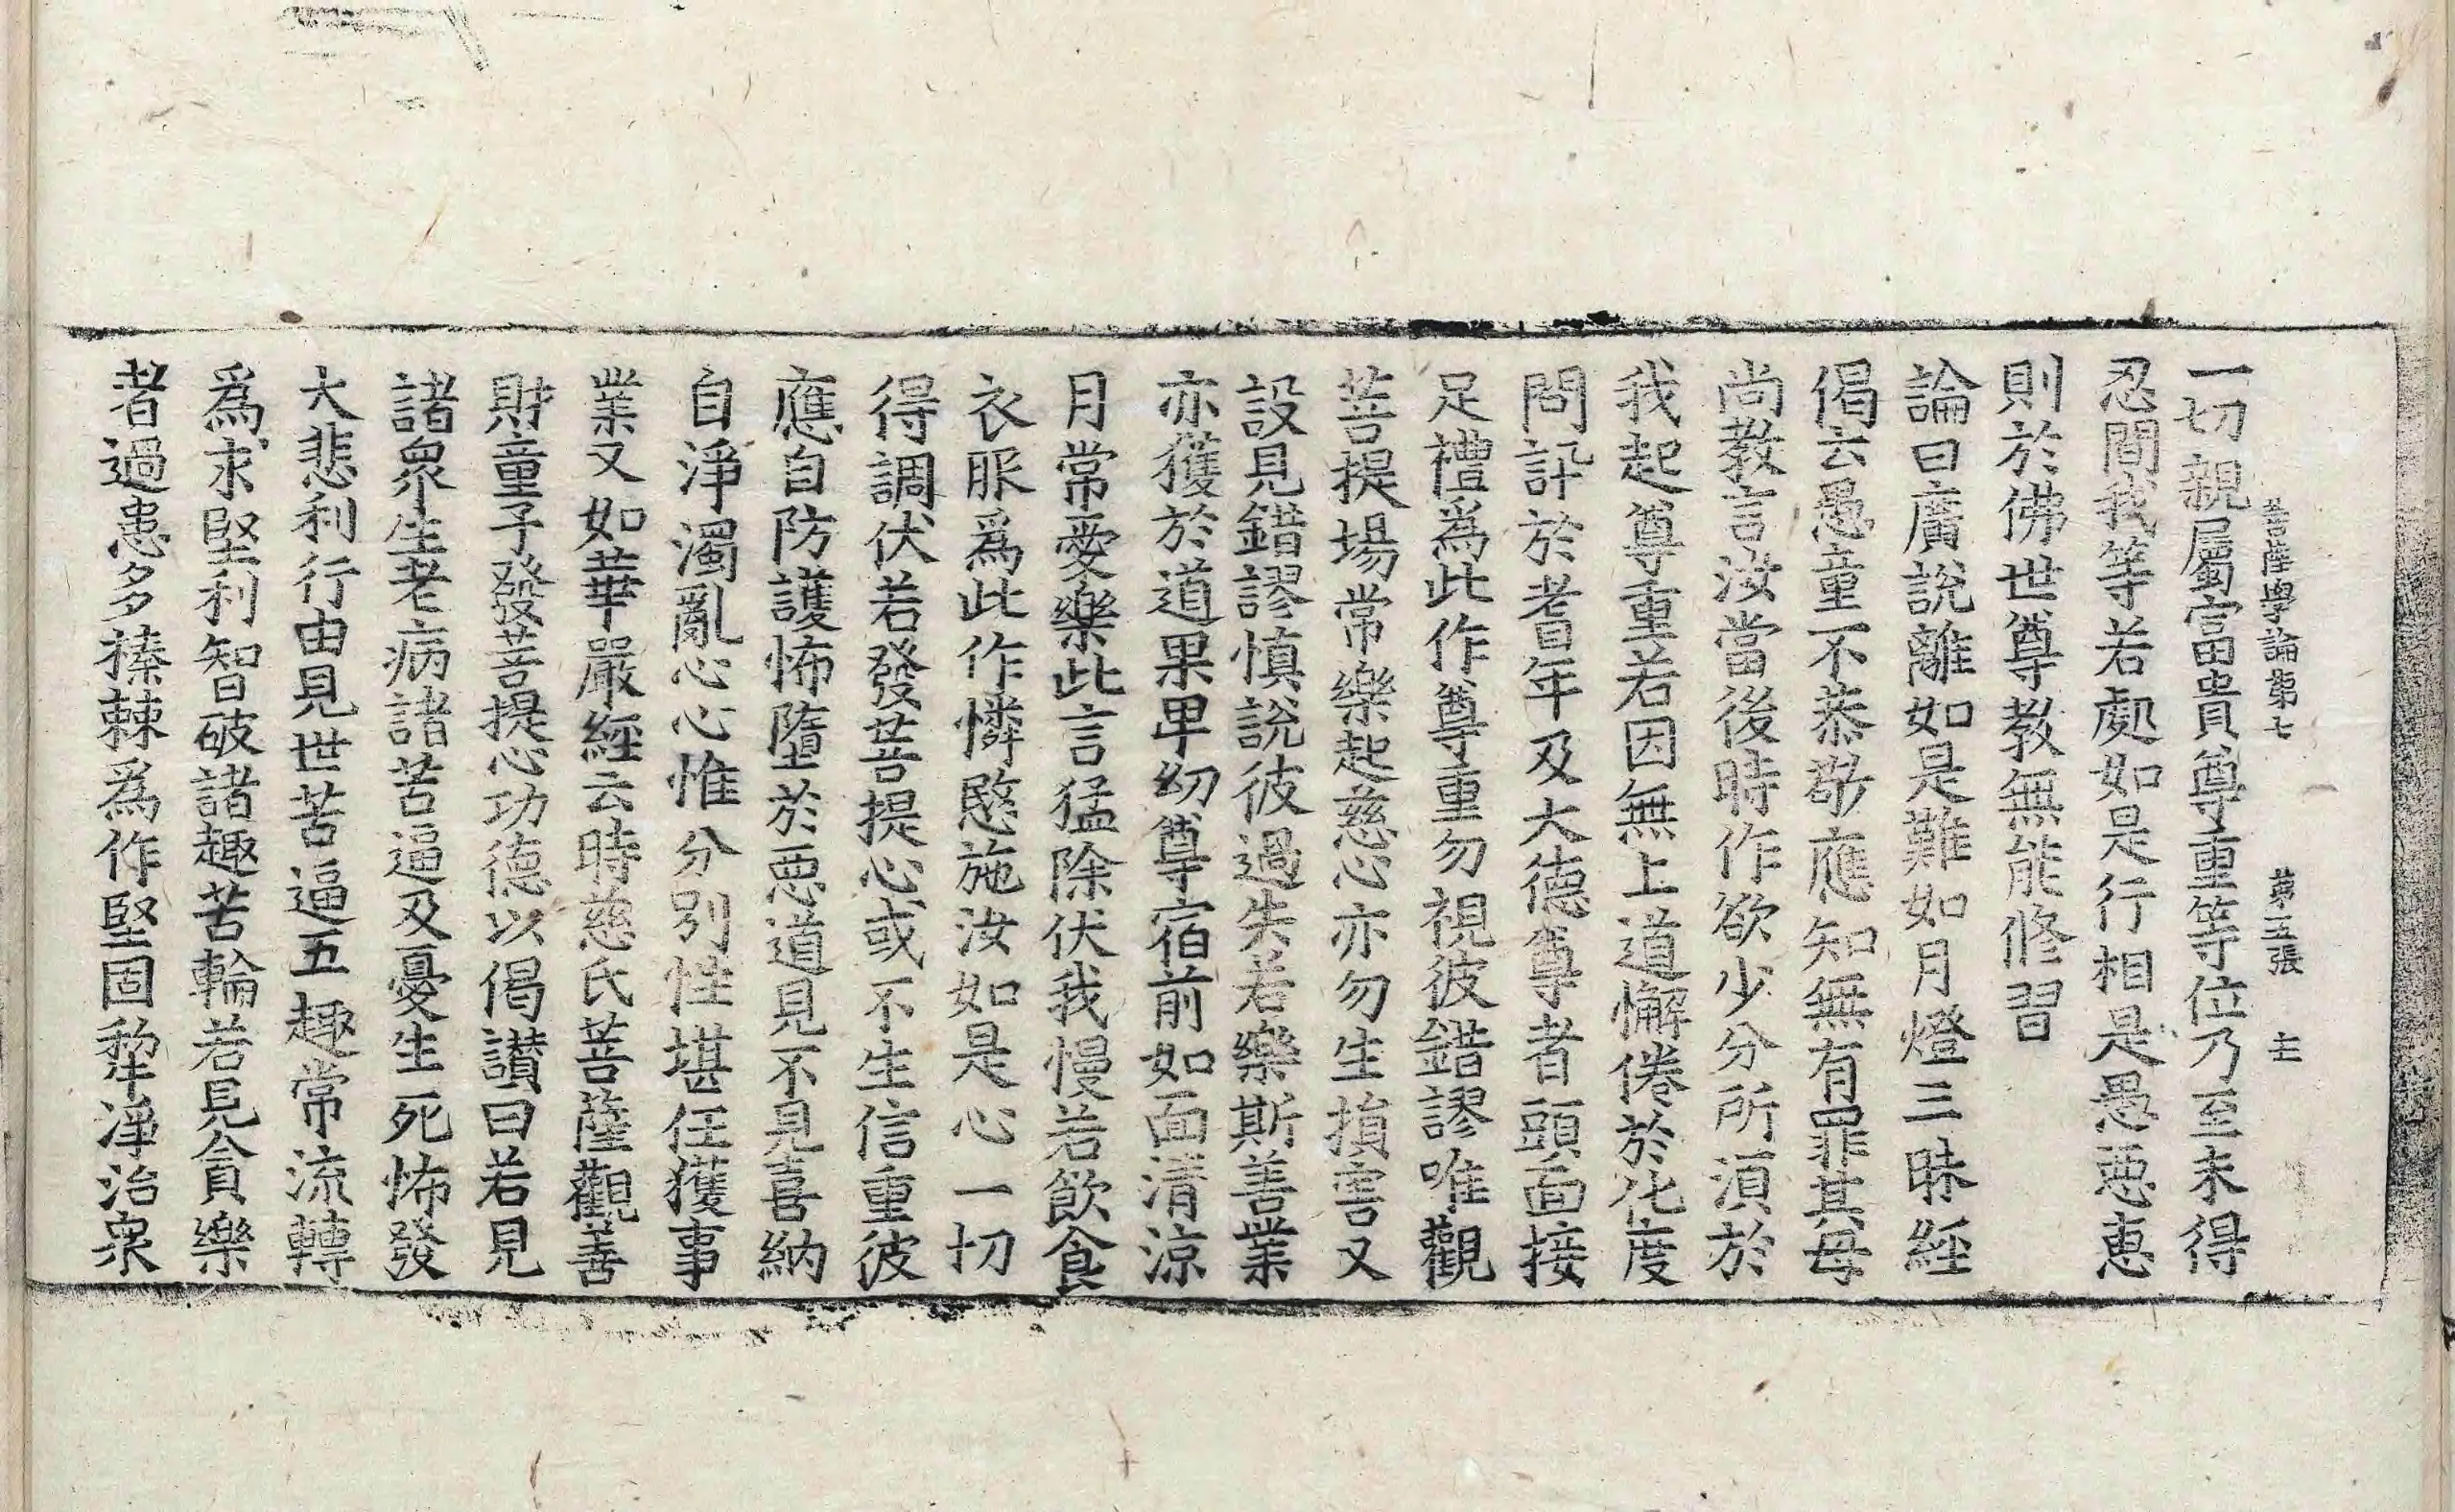 菩薩學論第七　第五張　主
一切親屬富貴尊重等位乃至未得
忍間我等若處如是行相是愚惡恵
則於佛世尊教無能修習
論曰廣說離如是難如月燈三昧經
偈云愚童不恭敬應知無有罪其母
尚教言汝當後時作欲少分所湏於
我起尊重若因無上道懈倦於化度
問訃於耆年及大德尊者頭面接
足禮爲此作尊重勿視彼錯謬唯觀
菩提場常樂起慈心亦勿生損害又
設見錯謬慎說彼過失若樂斯善業
亦獲於道果卑幼尊宿前如面清涼
月常愛樂此言猛除伏我慢若飲食
衣服爲此作憐愍施汝如是心一切
得調伏若發菩提心或不生信重彼
應自防護怖墮於惡道見不見喜納
自淨濁亂心心惟分別性堪任獲事
業又如華嚴經云時慈氏菩薩觀善
財童子發菩提心功德以偈讃曰若見
諸衆生老病諸苦逼及憂生死怖發
大悲利行由見世苦逼五趣常流轉
爲求堅利智破諸趣苦輪若見貪樂
者過患多榛棘爲作堅固犂淨治衆